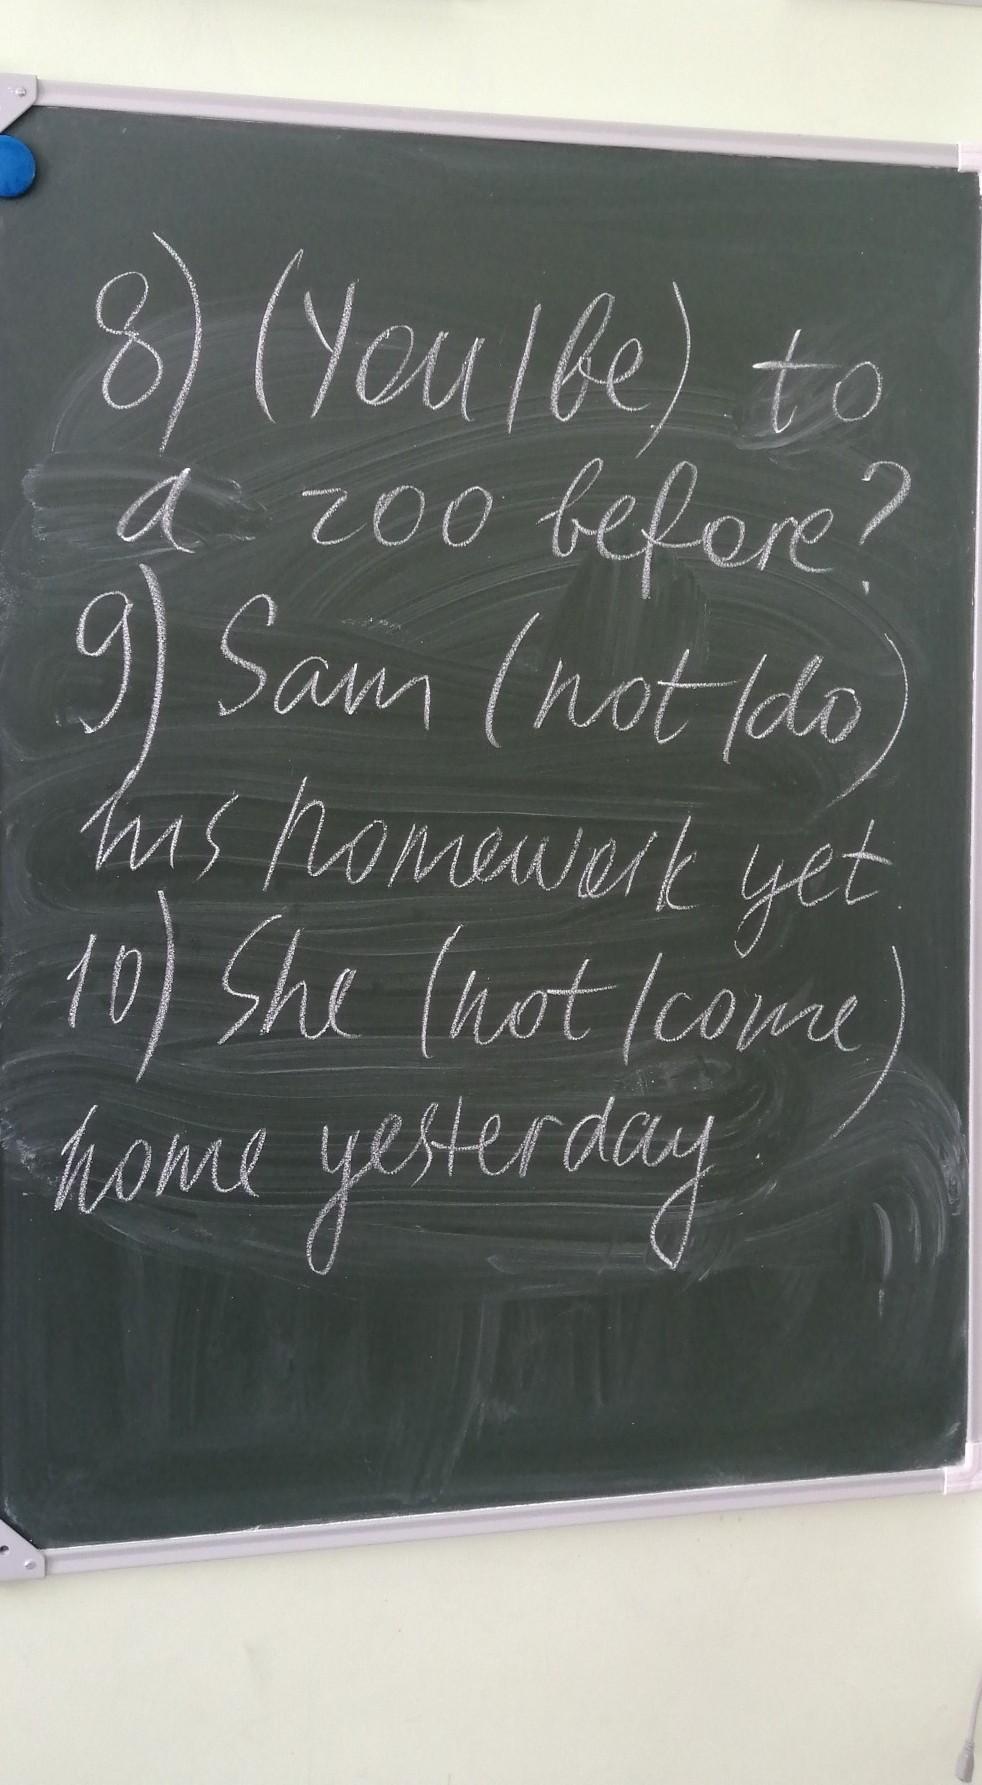 8) (You/be) to
a zoo before?
9) Sam (not/do)
his homework yet.
10) She (not/come)
home yesterday.